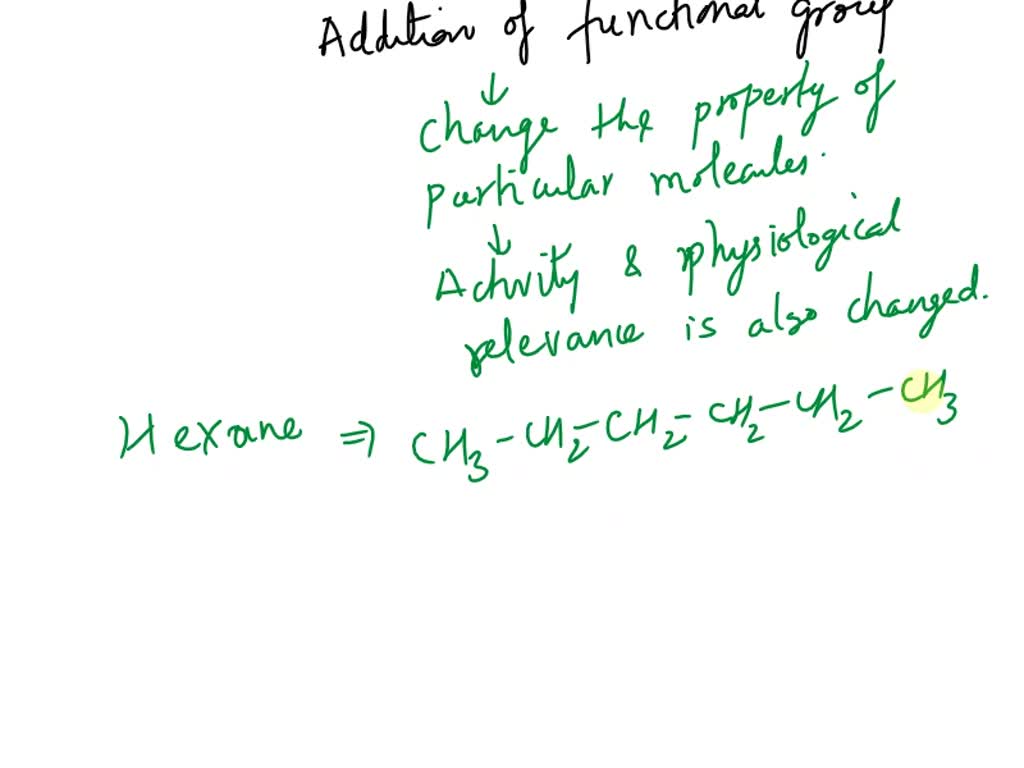 Addition of functional group
↓
Change the property of
particular molecules.
↓
Activity & physiological
relevance is also changed.
Hexane ⇒ CH3 - CH2 - CH2 - CH2 - CH2 - CH3